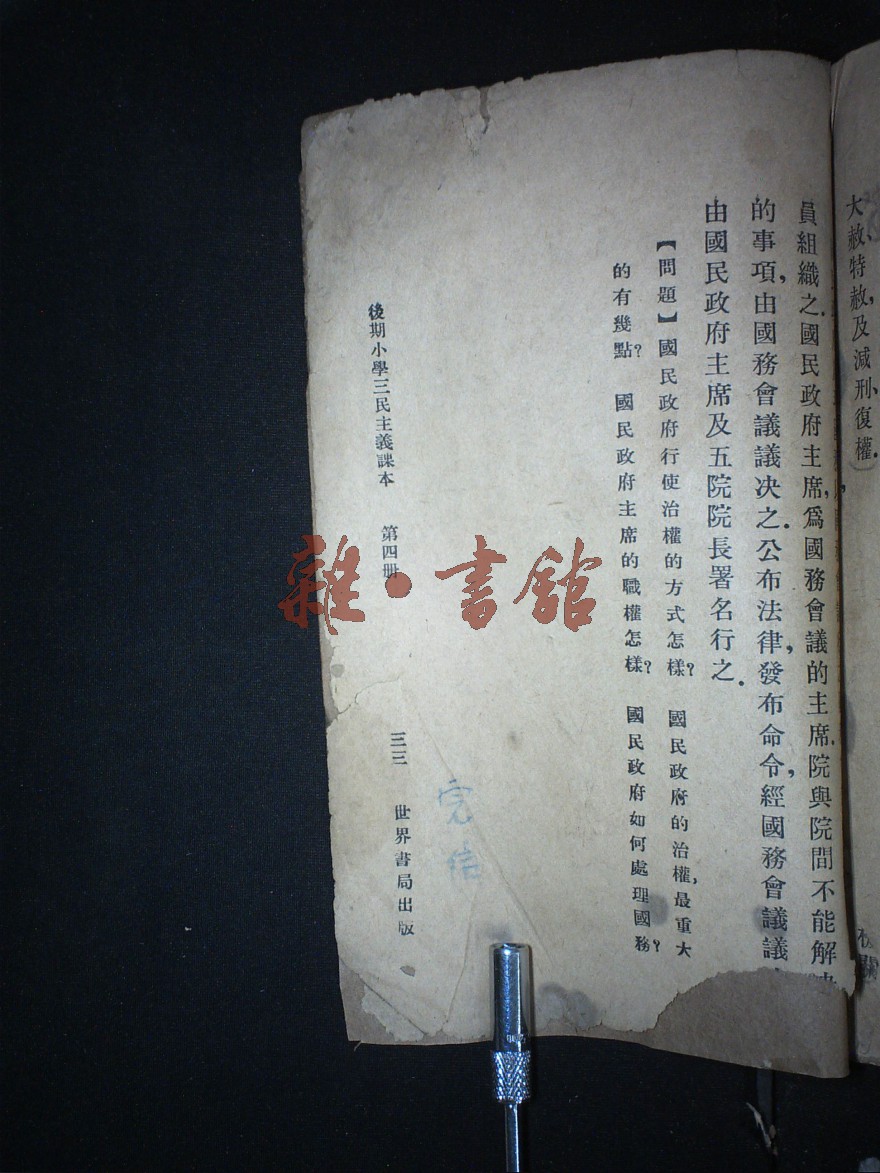 大赦、特赦，及減刑、復權．）
員組織之．國民政府主席，爲國務會議的主席．院與院間不能解決
的事項，由國務會議議決之．公布法律，發布命令，經國務會議議
由國民政府主席及五院院長署名行之．
【問題】國民政府行使治權的方式怎樣？國民政府的治權，最重大
的有幾點？國民政府主席的職權怎樣？國民政府如何處理國務？
後期小學三民主義課本　第四册　三三　世界書局出版
雜·書館